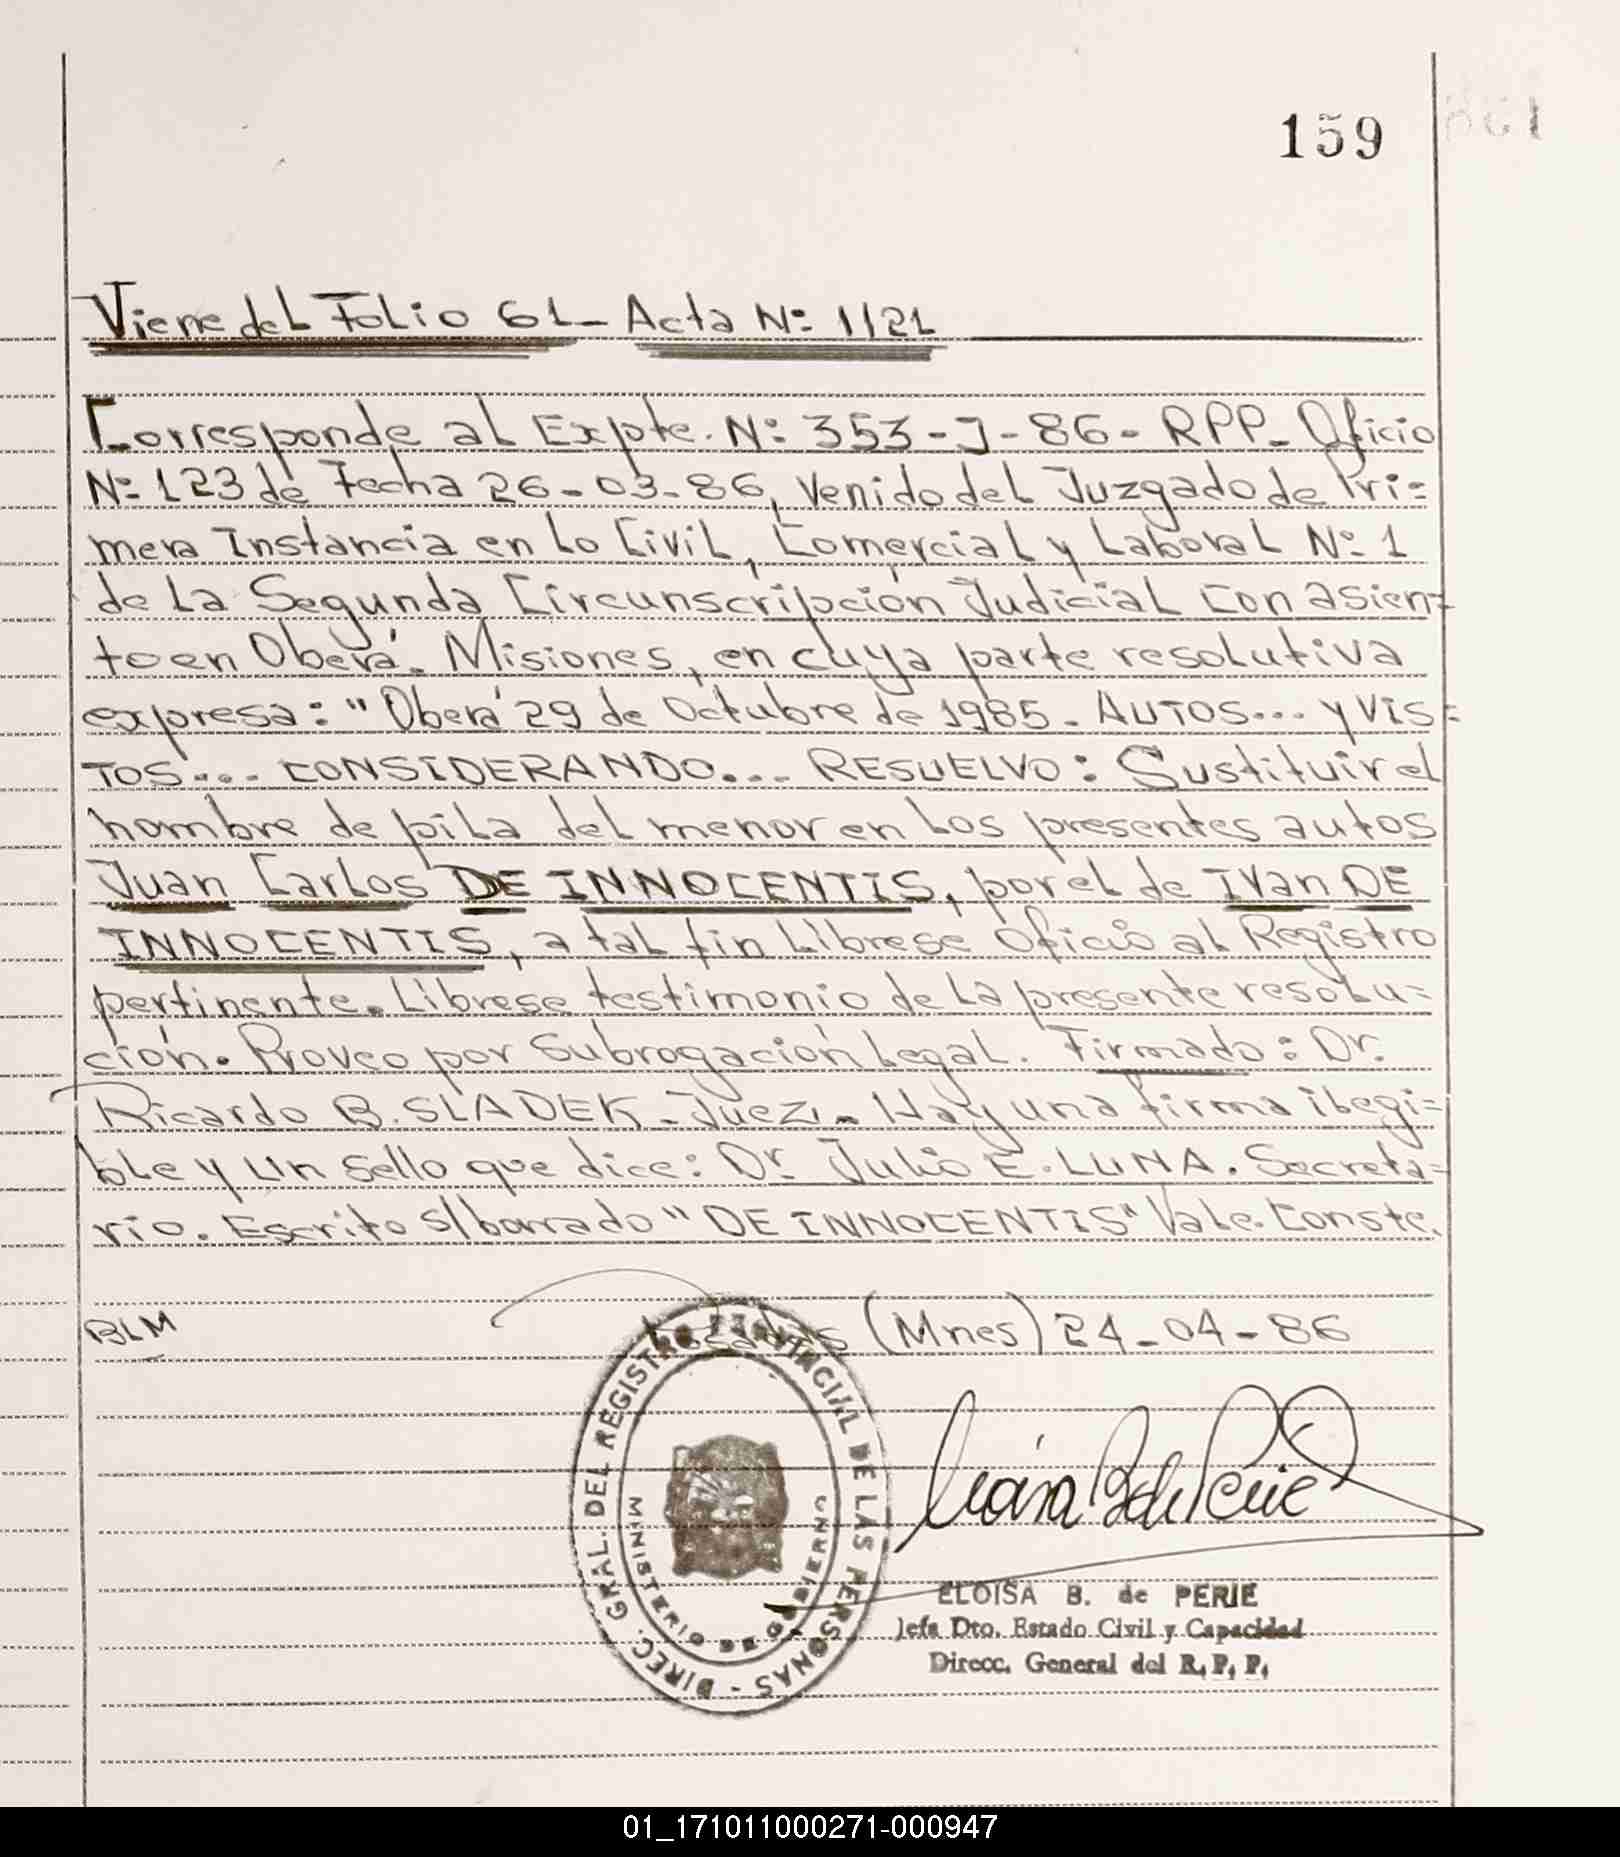 159
Viene del Folio 61- Acta Nº 1121
Corresponde al Expte. Nº 353-J-86- RPP- Oficio
Nº 123 de Fecha 26-03-86, Venido del Juzgado de Pri=
mera Instancia en lo Civil, Comercial y Laboral Nº 1
de la Segunda Circunscripción Judicial con asien=
to en Oberá. Misiones, en cuya parte resolutiva
expresa: "Oberá 29 de Octubre de 1985- AUTOS... y VIS=
TOS... CONSIDERANDO... RESUELVO: Sustituir el
nombre de pila del menor en los presentes autos
Juan Carlos DE INNOCENTIS, por el de IVan DE
INNOCENTIS, a tal fin Librese Oficio al Registro
pertinente. Librese testimonio de la presente resolu=
ción. Proveo por Subrogación Legal. Firmado: Dr.
Ricardo B. SLADEK- Juez,- Hay una firma ilegi=
ble y un sello que dice: Dr. Julio E. LUNA. Secreta=
rio. Escrito s/borrado "DE INNOCENTIS" Vale. Conste.
BLM
Posadas (Mnes) 24-04-86
DIREC. GRAL. DEL REGISTRO PROVINCIAL DE LAS PERSONAS -
MINISTERIO DE GOBIERNO
ELOISA B. de PERIE
Jefa Dto. Estado Civil y Capacidad
Direcc. General del R. P. P.
01_171011000271-000947